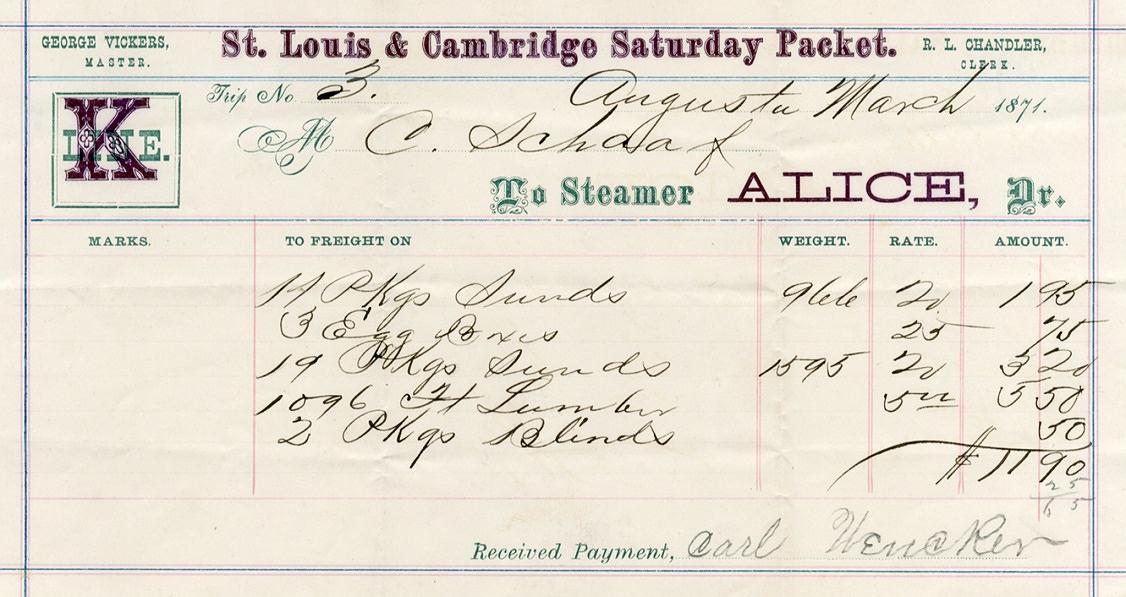 GEORGE VICKERS, MASTER.
St. Louis & Cambridge Saturday Packet.
R. L. CHANDLER, CLERK.
Trip No 3. Augusta March 1871.
K LINE.
M C. Schaaf
To Steamer ALICE, Dr.
MARKS. TO FREIGHT ON WEIGHT. RATE. AMOUNT.
14 PKgs Sunds 966 20 1 95
3 Egg Boxes 25 75
19 PKgs Sunds 1595 20 3 20
1096 Ft Lumber 5 00 5 50
2 PKgs Blinds 50
$ 11 90
Received Payment, Carl Wencker